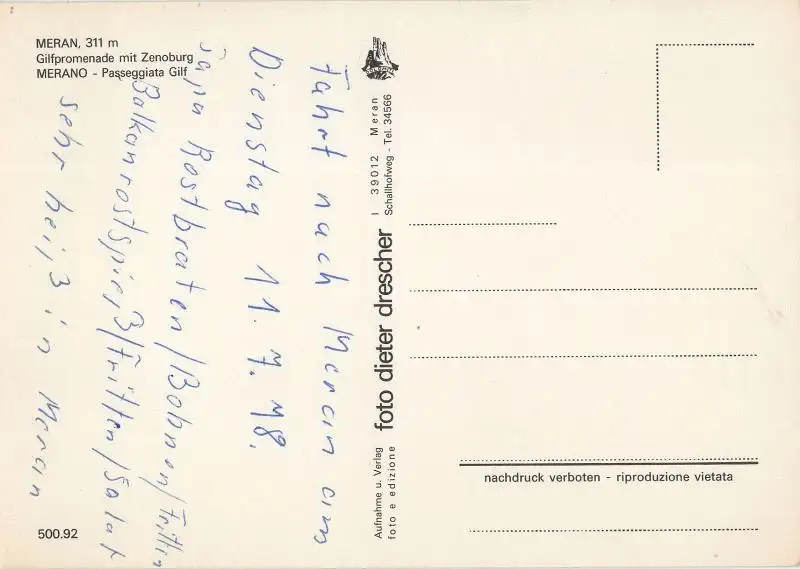 MERAN, 311 m
Gilfpromenade mit Zenoburg
MERANO - Passeggiata Gilf
Fahrt nach Meran am
Dienstag 11. 7. 78.
Papa Rostbraten/Bohnen/Fritten
Balkanrostspieß/Fritten/Salat
sehr heiß in Meran
500.92
foto dieter drescher
I 39012 Meran
Schallhofweg - Tel. 34566
Aufnahme u. Verlag
foto e edizione
nachdruck verboten - riproduzione vietata